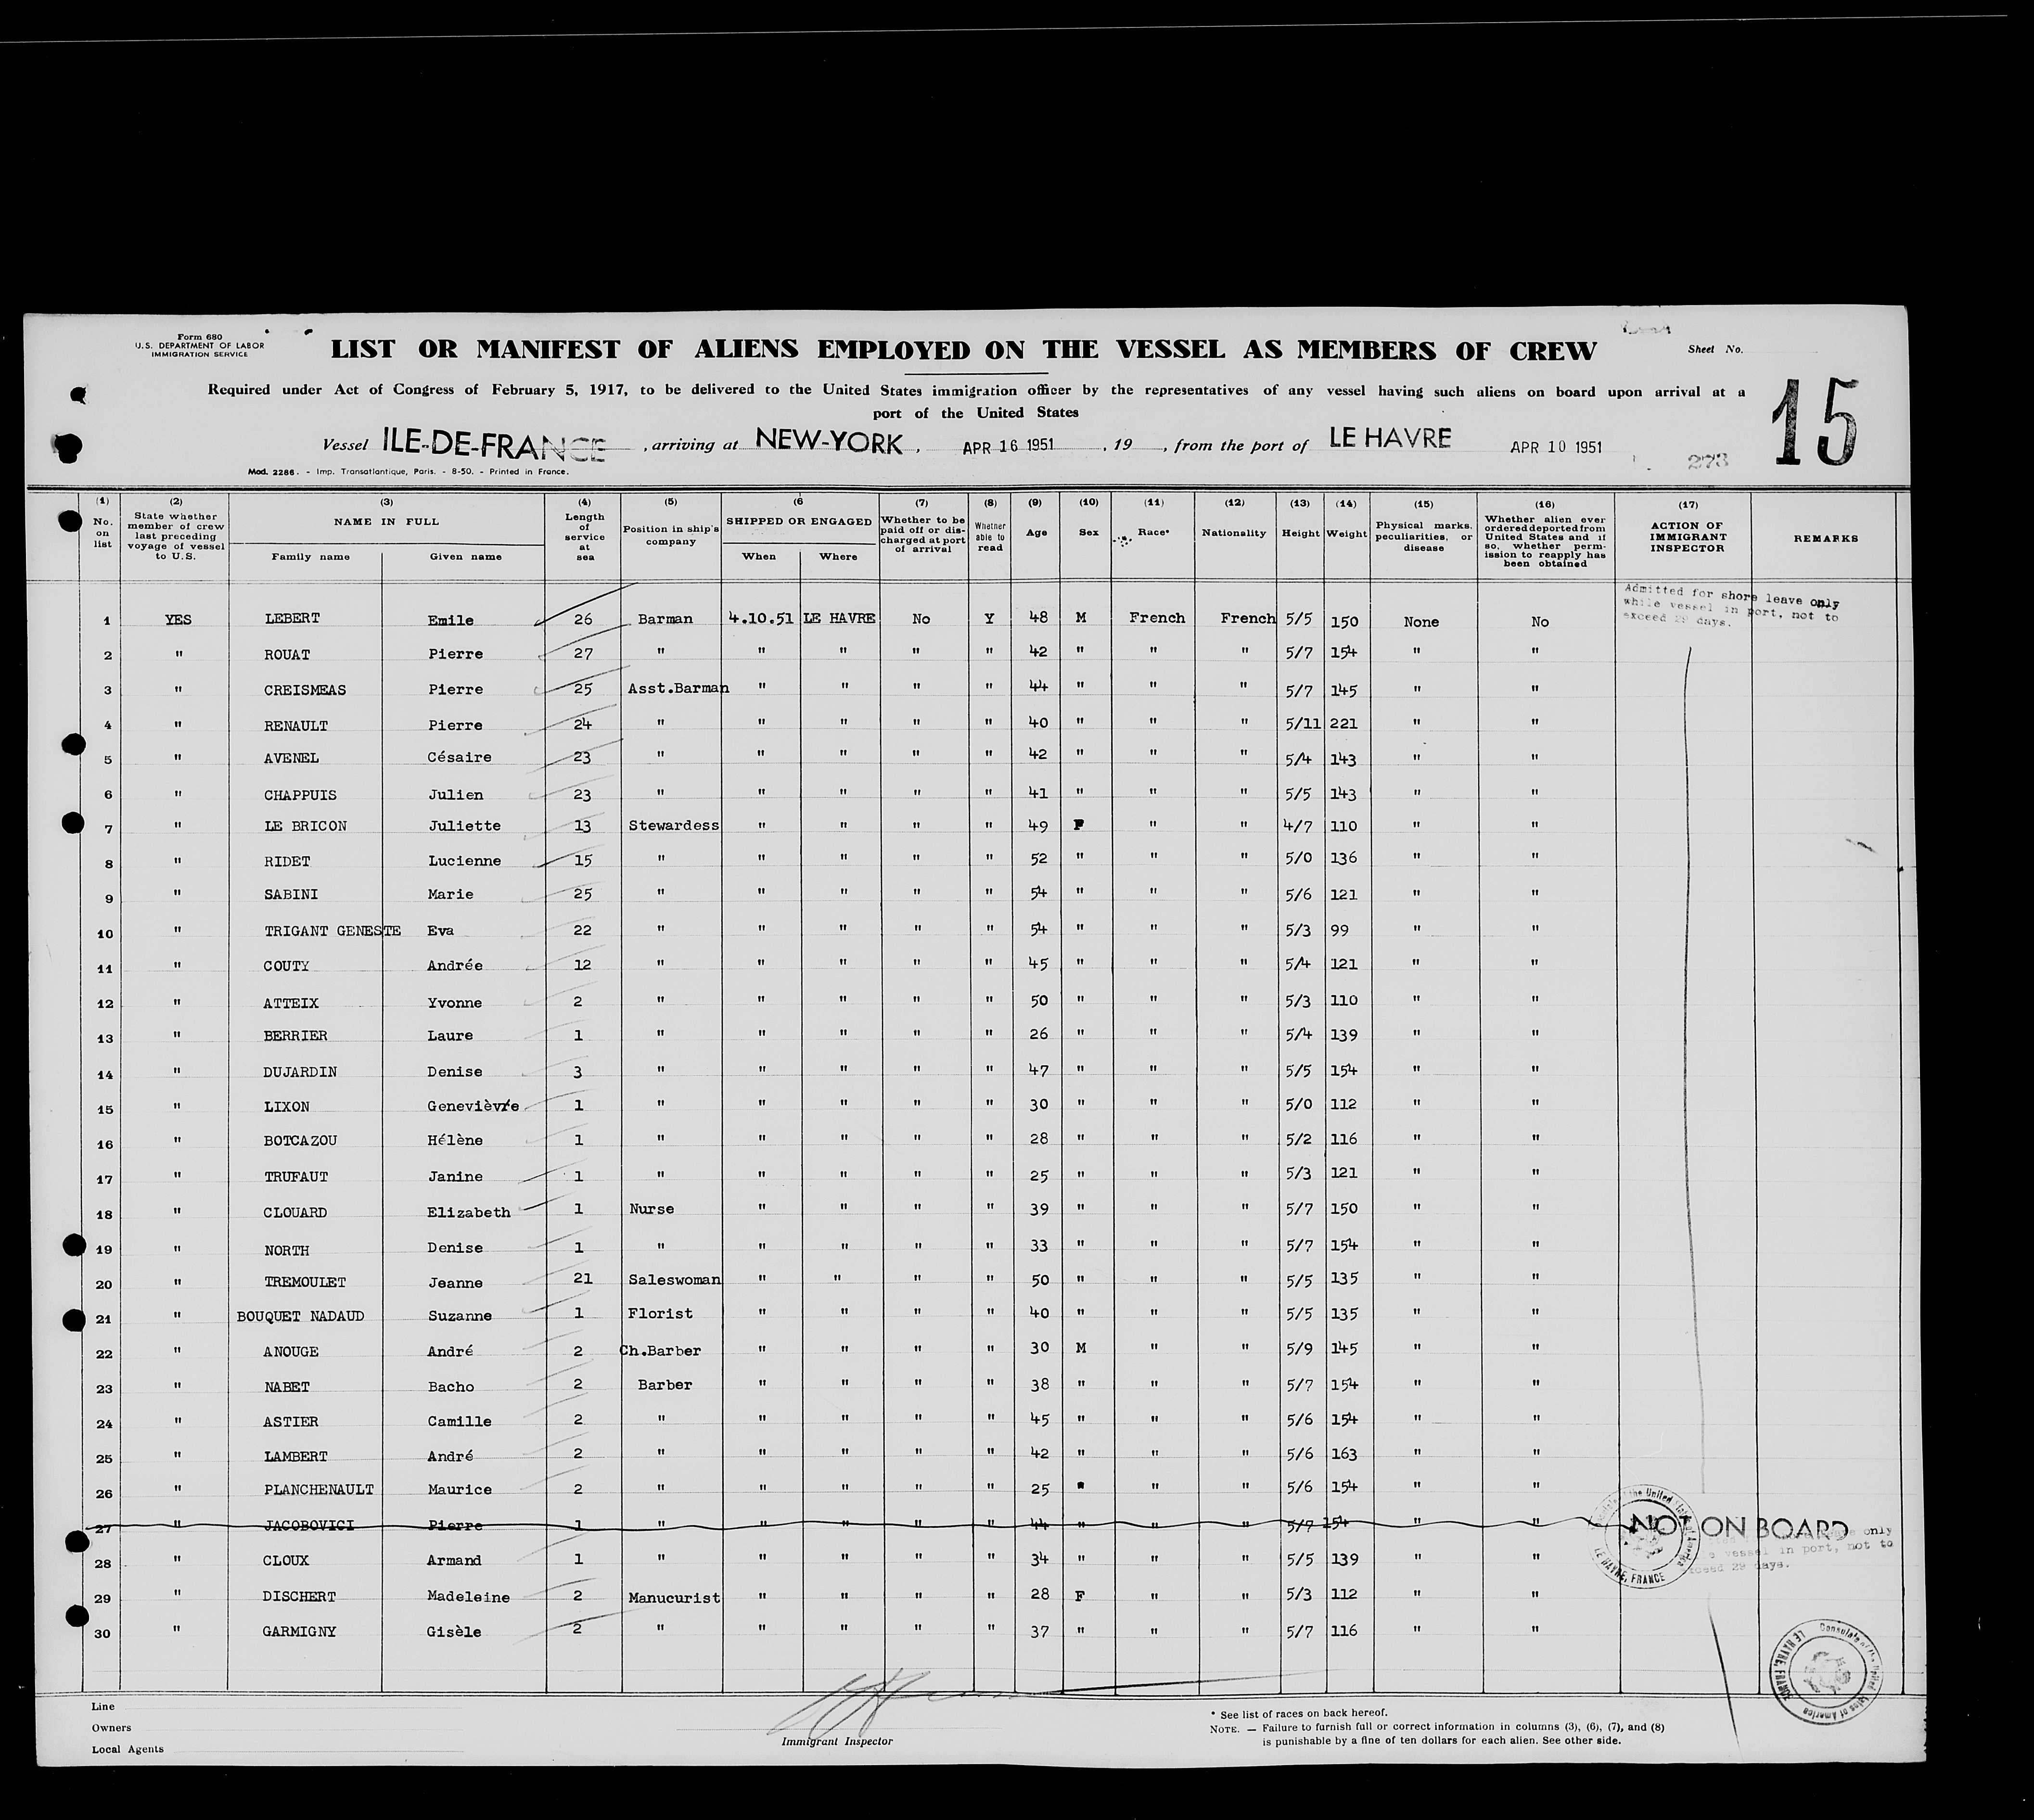 Form 680
U.S. DEPARTMENT OF LABOR
IMMIGRATION SERVICE
LIST OR MANIFEST OF ALIENS EMPLOYED ON THE VESSEL AS MEMBERS OF CREW
Sheet No.
Required under Act of Congress of February 5, 1917, to be delivered to the United States immigration officer by the representatives of any vessel having such aliens on board upon arrival at a
port of the United States
15
Vessel ILE-DE-FRANCE, arriving at NEW-YORK, APR 16 1951, 19 , from the port of LE HAVRE APR 10 1951
273
Mod. 2286. - Imp. Transatlantique, Paris. - 8-50. - Printed in France.
(1) No. on list
(2) State whether member of crew last preceding voyage of vessel to U.S.
(3) NAME IN FULL Family name Given name
(4) Length of service at sea
(5) Position in ship's company
(6 SHIPPED OR ENGAGED When Where
(7) Whether to be paid off or discharged at port of arrival
(8) Whether able to read
(9) Age
(10) Sex
(11) Race*
(12) Nationality
(13) Height
(14) Weight
(15) Physical marks, peculiarities, or disease
(16) Whether alien ever ordered deported from United States and if so, whether permission to reapply has been obtained
(17) ACTION OF IMMIGRANT INSPECTOR
REMARKS
Admitted for shore leave only
while vessel in port, not to
exceed 29 days.
1 YES LEBERT Emile 26 Barman 4.10.51 LE HAVRE No Y 48 M French French 5/5 150 None No
2 " ROUAT Pierre 27 " " " " " 42 " " " 5/7 154 " "
3 " CREISMEAS Pierre 25 Asst.Barman " " " " 44 " " " 5/7 145 " "
4 " RENAULT Pierre 24 " " " " " 40 " " " 5/11 221 " "
5 " AVENEL Césaire 23 " " " " " 42 " " " 5/4 143 " "
6 " CHAPPUIS Julien 23 " " " " " 41 " " " 5/5 143 " "
7 " LE BRICON Juliette 13 Stewardess " " " " 49 F " " 4/7 110 " "
8 " RIDET Lucienne 15 " " " " " 52 " " " 5/0 136 " "
9 " SABINI Marie 25 " " " " " 54 " " " 5/6 121 " "
10 " TRIGANT GENESTE Eva 22 " " " " " 54 " " " 5/3 99 " "
11 " COUTY Andrée 12 " " " " " 45 " " " 5/4 121 " "
12 " ATTEIX Yvonne 2 " " " " " 50 " " " 5/3 110 " "
13 " BERRIER Laure 1 " " " " " 26 " " " 5/4 139 " "
14 " DUJARDIN Denise 3 " " " " " 47 " " " 5/5 154 " "
15 " LIXON Genevièvre 1 " " " " " 30 " " " 5/0 112 " "
16 " BOTCAZOU Hélène 1 " " " " " 28 " " " 5/2 116 " "
17 " TRUFAUT Janine 1 " " " " " 25 " " " 5/3 121 " "
18 " CLOUARD Elizabeth 1 Nurse " " " " 39 " " " 5/7 150 " "
19 " NORTH Denise 1 " " " " " 33 " " " 5/7 154 " "
20 " TREMOULET Jeanne 21 Saleswoman " " " " 50 " " " 5/5 135 " "
21 " BOUQUET NADAUD Suzanne 1 Florist " " " " 40 " " " 5/5 135 " "
22 " ANOUGE André 2 Ch.Barber " " " " 30 M " " 5/9 145 " "
23 " NABET Bacho 2 Barber " " " " 38 " " " 5/7 154 " "
24 " ASTIER Camille 2 " " " " " 45 " " " 5/6 154 " "
25 " LAMBERT André 2 " " " " " 42 " " " 5/6 163 " "
26 " PLANCHENAULT Maurice 2 " " " " " 25 " " " 5/6 154 " "
27 " JACOBOVICI Pierre 1 " " " " " 44 " " " 5/7 154 " " NOT ON BOARD
28 " CLOUX Armand 1 " " " " " 34 " " " 5/5 139 " "
29 " DISCHERT Madeleine 2 Manucurist " " " " 28 F " " 5/3 112 " "
30 " GARMIGNY Gisèle 2 " " " " " 37 " " " 5/7 116 " "
only
vessel in port, not to
exceed 29 days.
the United States of America
LE HAVRE, FRANCE
Consulate of the United States of America
LE HAVRE, FRANCE
Line
Owners
Local Agents
Immigrant Inspector
* See list of races on back hereof.
NOTE. — Failure to furnish full or correct information in columns (3), (6), (7), and (8)
is punishable by a fine of ten dollars for each alien. See other side.